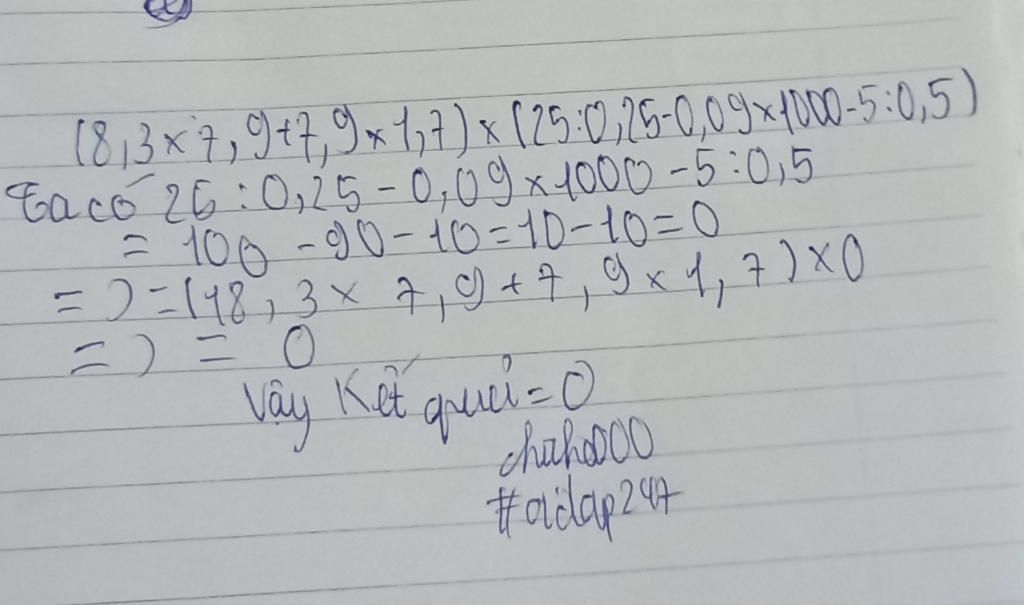 (8,3 x 7,9 + 7,9 x 1,7) x (25:0,25-0,09 x 1000-5:0,5)
Ta có 25 : 0,25 - 0,09 x 1000 - 5 : 0,5
= 100 - 90 - 10 = 10 - 10 = 0
=) = (18,3 x 7,9 + 7,9 x 1,7) x 0
=) = 0
Vậy kết quả = 0
#aidap247